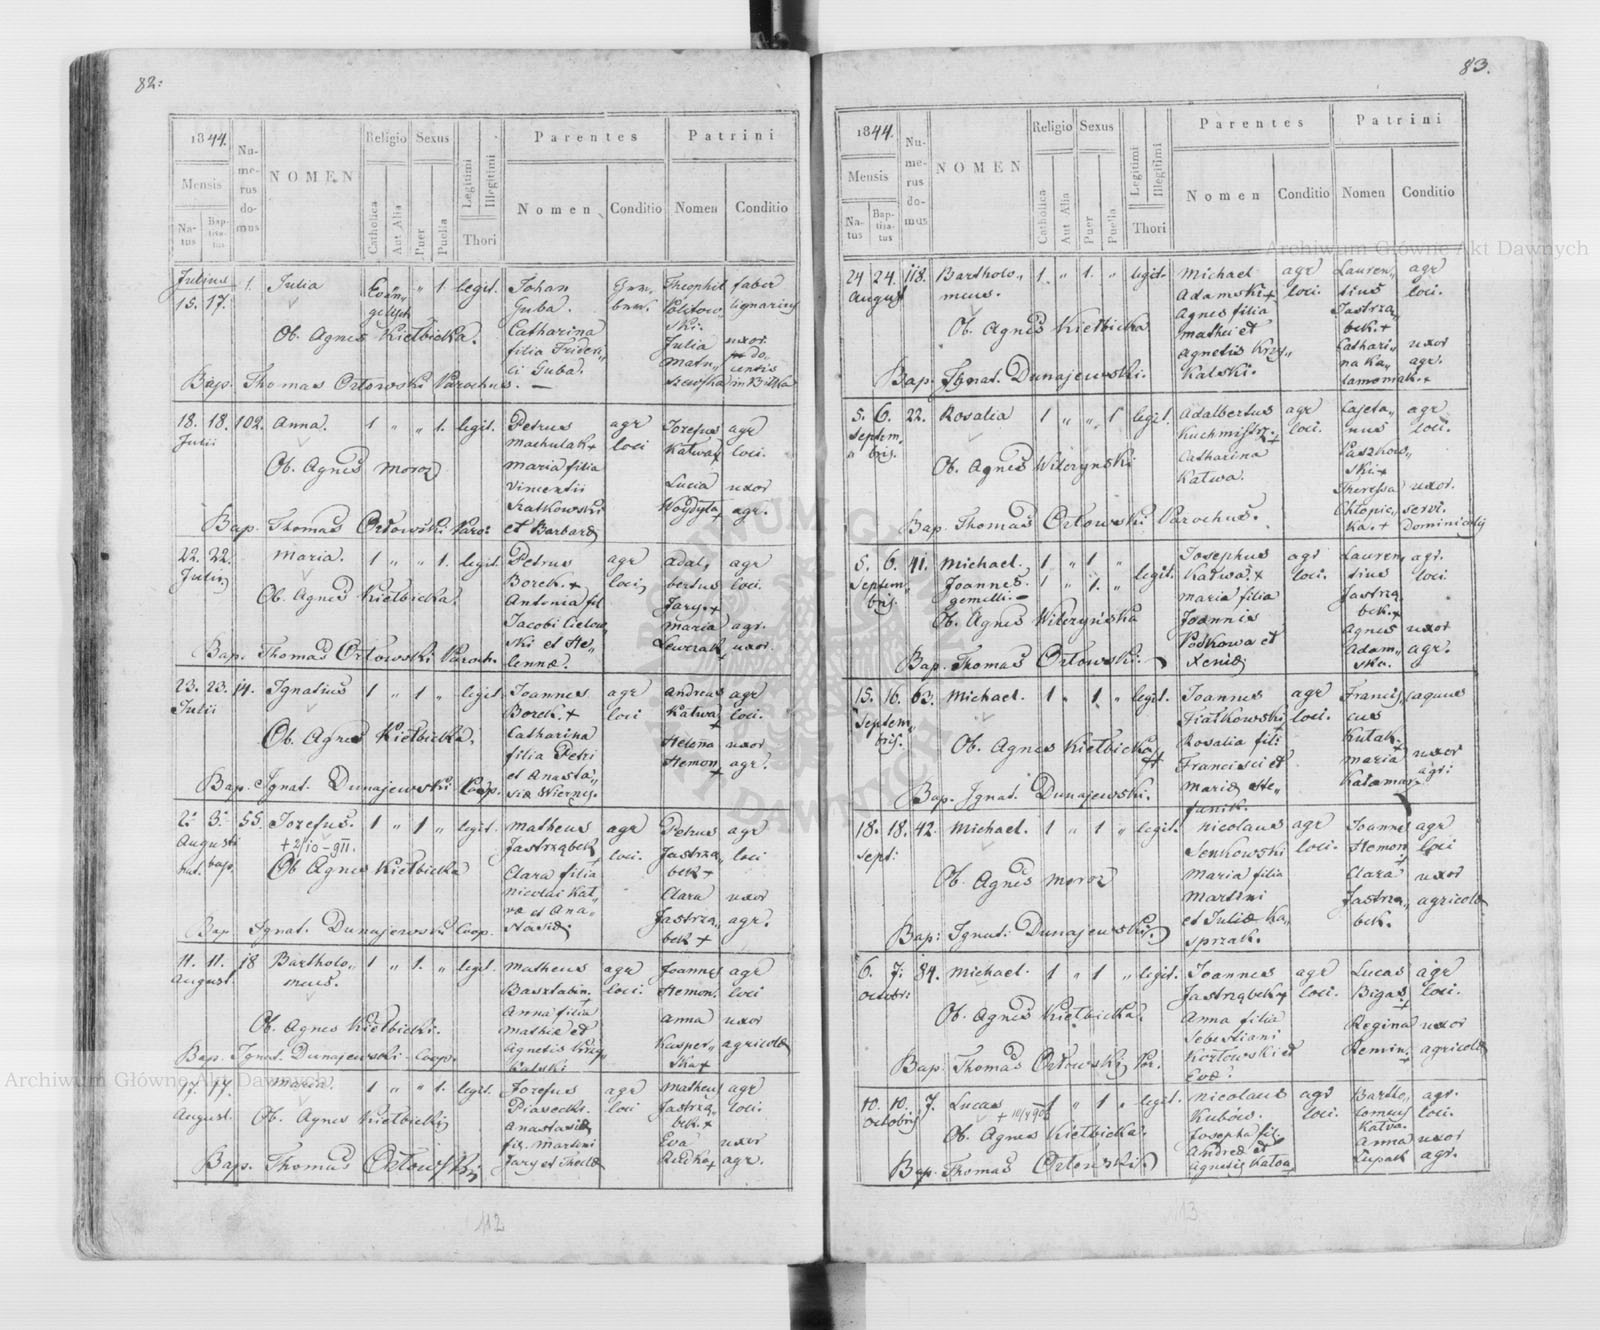 82:
1844.
Mensis
Natus
Baptisatus
Numerus domus
NOMEN
Religio
Catholica
Aut Alia
Sexus
Puer
Puella
Legitimi
Illegitimi
Thori
Parentes
Nomen
Conditio
Patrini
Nomen
Conditio
Julius 15. 17. 1. Julia Evangelisch " 1 legit. Johan Guba. Theophil faber lignarius
Catharina filia Friderici Guba. Julia uxor
Ob. Agnes Kiełbicka.
Bap. Thomas Orłowski Parochus. —
18. 18. 102. Anna. 1 " " 1. legit. Petrus Machulak + agr loci Jozefus Katwa + agr loci.
Julii
Maria filia Vincentii et Barbara Lucia Woydyła + uxor agr.
Ob. Agnes Moroz
Bap. Thomas Orłowski Paro:
22. 22. Maria. 1 " " 1. legit. Petrus Borek. + agr loci Adalbertus Jary. + agr loci.
Julii
Antonia fil Jacobi et Helennæ. Maria uxor agr.
Ob. Agnes Kiełbicka.
Bap. Thomas Orłowski Paroch.
23. 23. 14. Ignatius 1 " 1 " legit Joannes Borek. + agr loci Andreas Katwa + agr loci.
Julii
Catharina filia Petri et Anasta„ Helena Hemon + uxor agr.
Ob. Agnes Kiełbicka,
Bap. Ignat. Dunajewski Coop.
2. 3. 55. Jozefus. 1 " 1 " legit. Matheus Jastrząbek + agr loci. Petrus Jastrzą„bek + agr loci
Augusti
nat. bap.
Clara filia Nicolai et Ana„ Clara Jastrzą„bek + uxor agr.
Ob Agnes Kiełbicka
Bap. Ignat. Dunajewski Coop.
11. 11. 18 Bartholo„meus. 1 " 1. " legit. Matheus Basztabin. + agr loci. Joannes Hemon. agr loci
August.
Anna filia Mathiæ et Agnetis Anna Kasper„ska + uxor agricolæ
Ob. Agnes Kiełbicki.
Bap. Ignat. Dunajewski Coop.
17. 17. Maria. 1 " " 1. legit. Jozefus Piasecki. agr loci Matheus Jastrzą„bek. + agr loci.
August.
Anastasia fil. Martini Jary et Theclæ Eva uxor agr.
Ob. Agnes Kiełbicki
Bap. Thomas Orłowski
112
83.
1844.
Mensis
Natus
Baptisatus
Numerus domus
NOMEN
Religio
Catholica
Aut Alia
Sexus
Puer
Puella
Legitimi
Illegitimi
Thori
Parentes
Nomen
Conditio
Patrini
Nomen
Conditio
24 24. 118. Bartholo„meus. 1. " 1. " legit. Michael Adamski + agr loci. Lauren„tius Jastrzą„bek. + agr loci.
August
Agnes filia Mathei et Agnetis Krzy„kalski. Cathari„na Ka„lamoniak. + uxor agr.
Ob. Agnes Kiełbicka
Bap. Ignat. Dunajewski.
5. 6. 22. Rosalia 1 " " 1 legit. Adalbertus Kuchmistrz. + agr loci. Cajeta„nus Paszkow„ski + agr loci.
Septembris.
Catharina Katwa. Theressa Chłopic„ka. + uxor. servi. Dominicalis
Ob. Agnes Wilczynski
Bap. Thomas Orłowski Parochus.
5. 6. 41. Michael. 1 " 1 " Josephus Katwa + agr loci. Lauren„tius Jastrzą„bek. + agr. loci
Septembris. Joannes. 1 " 1. " legit. gemelli. —
Maria filia Joannis Podkowa et Xeniæ Agnes Adam„ska. uxor agr.
Ob. Agnes Wilczyńska
Bap. Thomas Orłowski.
15. 16. 63. Michael. 1 " 1. " legit. Joannes Fiałkowski agr loci. Francis„cus Kutak. +
Septembris.
Rosalia fili Francisci et Mariæ Ste„fanik. Maria uxor agr:
Ob. Agnes Kiełbicka
Bap. Ignat. Dunajewski.
18. 18. 42. Michael. 1 " 1 " legit. Nicolaus Senkowski agr loci. Joannes Hemon agr loci
Sept:
Maria filia Martini et Juliæ Ka„sprzak. Clara Jastrzą„bek. uxor agricolæ
Ob. Agnes Moroz
Bap: Ignat: Dunajewski.
6. 7. 84. Michael. 1 " 1 " legit. Joannes Jastrząbek + agr loci. Lucas Bigas + agr loci.
Octobri:
Anna filia Sebestiani Kozłowski et Evæ. Regina uxor agricolæ
Ob. Agnes Kiełbicka.
Bap. Thomas Orłowski Par.
10. 10. 7. Lucas 1 " 1 " legit. Nicolaus Kubów. agr loci. Bartho„lomeus Katwa. agr. loci.
Octobris
Josepha fil. Andreæ et Agnetis Katwa Anna Łupak uxor agr.
Ob. Agnes Kiełbicka.
Bap. Thomas Orłowski.
13
Archiwum Główne Akt Dawnych
Archiwum Główne Akt Dawnych